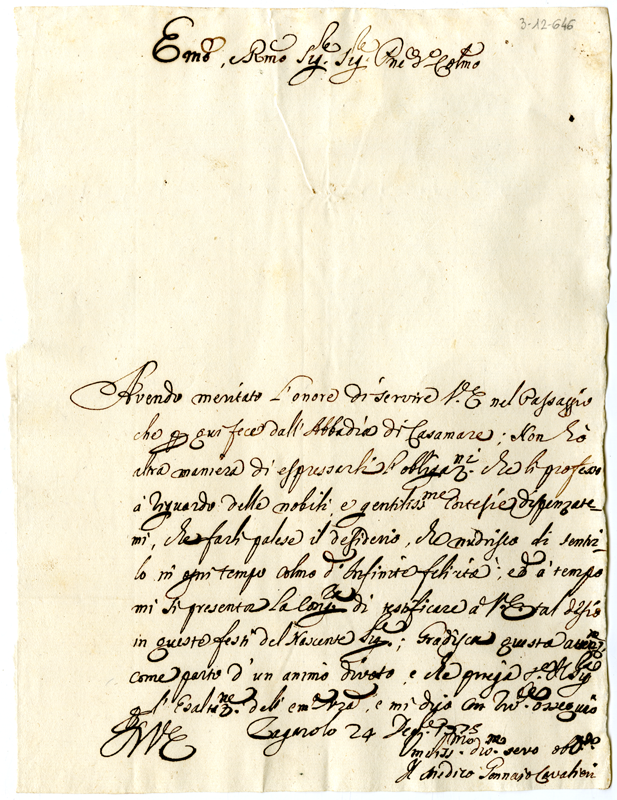 3-12-646
Emo, e Rmo Sig.re Sig.re Pne Colmo
Avendo meritato l'onore di servire V.E nel Passaggio
che qui fece dall'Abbadia di Casamare; Non hò
altra maniera di espressarli l'obligaz.ni che li professo
à riguardo delle nobili, e gentiliss.me cortesie dispenzate-
mi, che farli palese il desiderio, che nudrisco di sentir-
lo in ogni tempo colmo d'infinite felicità; ed à tempo
mi si presenta la di notificare à V.E. tal desio
in queste feste del Nascente Sig.re; Gradisca questa
come parto d'un animo divoto, e che priega il Sig.re
p l'Esaltaz.ne dell'em.za Vra, e mi dijo con ossequio
Di V E
Zagarolo 24
servo obb.mo
Il Medico Gennajo Cavalieri